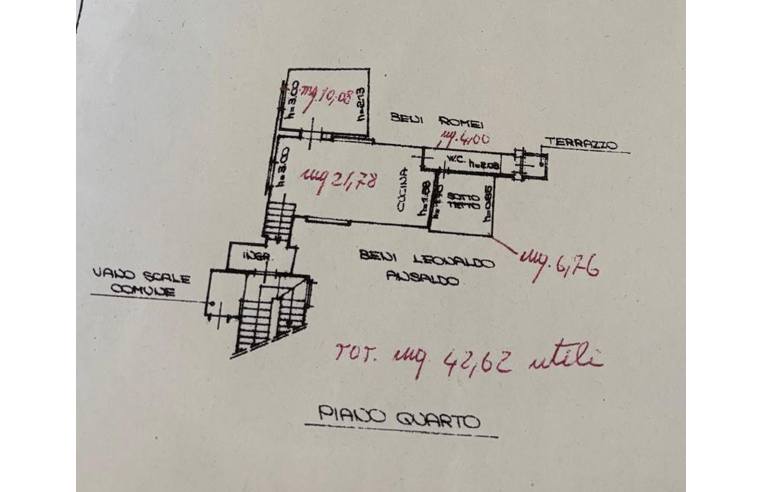 h=3.00
mq 10,08
h=2.13
BENI ROMEI
mq. 4,00
TERRAZZO
W.C. h=2.08
h=3.00
mq 21,78
CUCINA
h=1.88
SOTTO
TETTO
h=0.85
INGR.
BENI LEONALDO
ANSALDO
mq. 6,76
VANO SCALE
COMUNE
TOT. mq. 42,62 utili
PIANO QUARTO